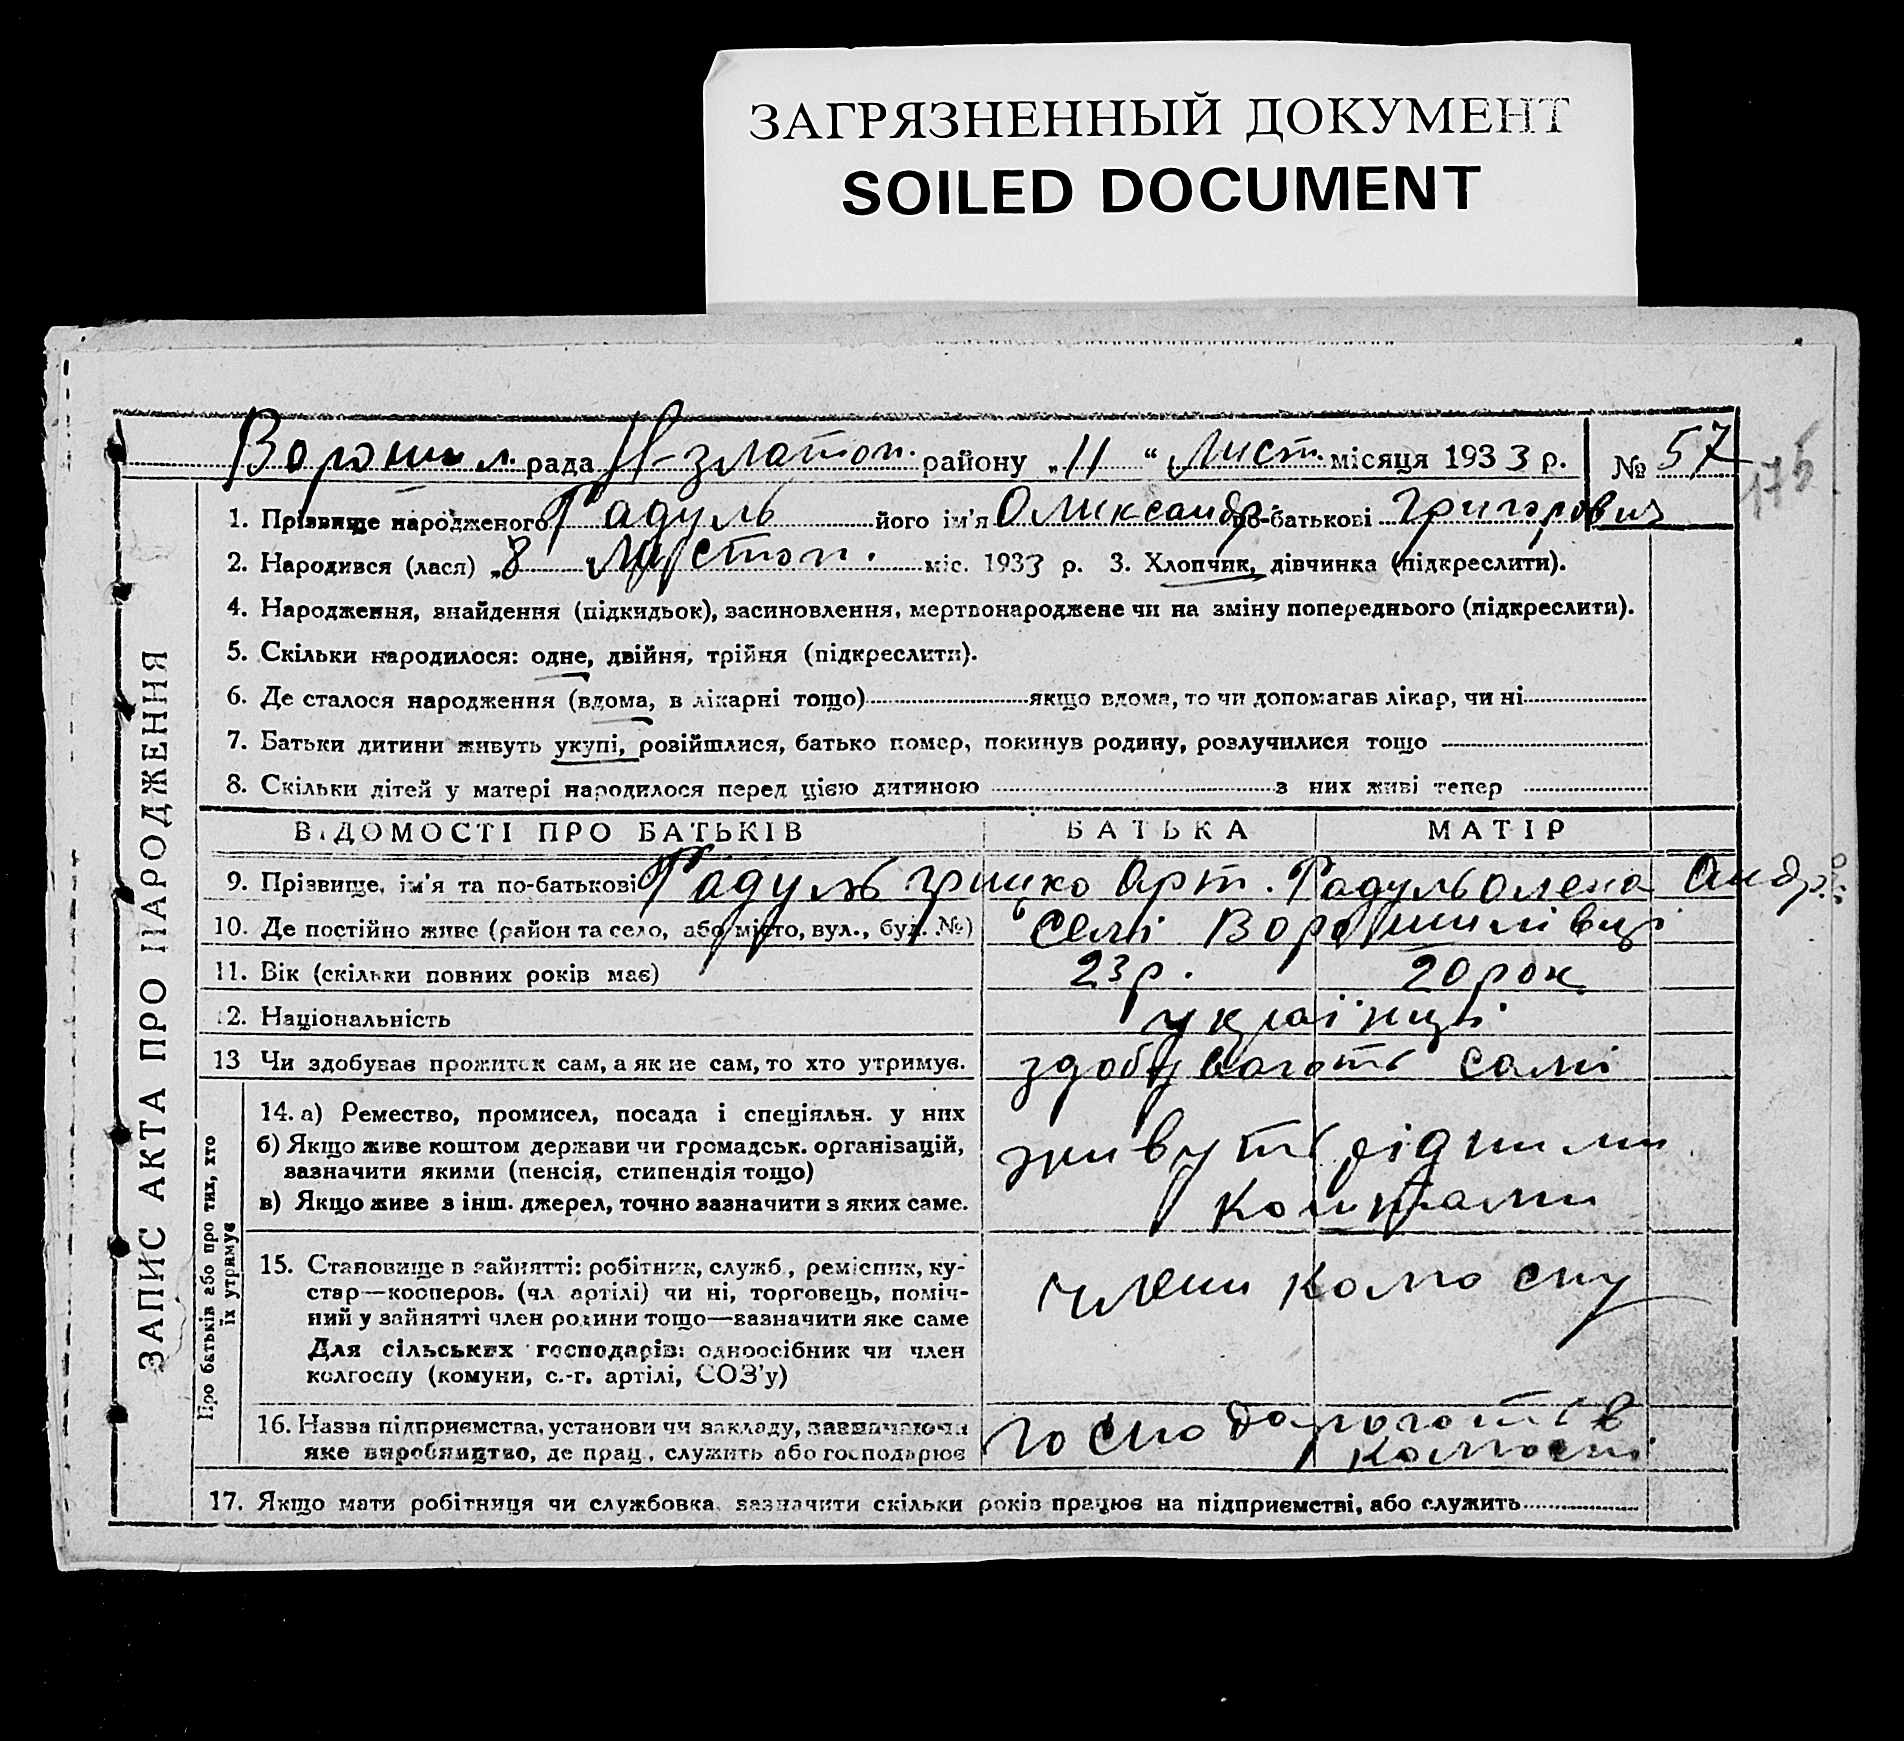 ЗАГРЯЗНЕННЫЙ ДОКУМЕНТ
SOILED DOCUMENT
Ворошил. рада Н-златоп. району „11“ Лист. місяця 1933 р. № 57
175
ЗАПИС АКТА ПРО НАРОДЖЕННЯ
1. Прізвище народженого Радуль його ім'я Олиександр по-батькові Григорович
2. Народився (лася) „8 Листоп. міс. 1933 р. 3. Хлопчик, дівчинка (підкреслити).
4. Народження, знайдення (підкидьок), засиновлення, мертвонароджене чи на зміну попереднього (підкреслити).
5. Скільки народилося: одне, двійня, трійня (підкреслити).
6. Де сталося народження (вдома, в лікарні тощо) якщо вдома, то чи допомагав лікар, чи ні
7. Батьки дитини живуть укупі, розійшлися, батько помер, покинув родину, розлучилися тощо
8. Скільки дітей у матері народилося перед цією дитиною з них живі тепер
ВІДОМОСТІ ПРО БАТЬКІВ БАТЬКА МАТІР
9. Прізвище, ім'я та по-батькові Радуль Грицко Арт. Радуль Олена Андр.
10. Де постійно живе (район та село, або місто, вул., буд. №) в селі Ворошилівці
11. Вік (скільки повних років має) 23 р. 20 рок
12. Національність українці
13 Чи здобував прожиток сам, а як не сам, то хто утримує. здобувають самі
Про батьків або про тих, хто
їх утримує
14. а) Ремество, промисел, посада і спеціяльн. у них
б) Якщо живе коштом держави чи громадськ. організацій, живуть рідними
зазначити якими (пенсія, стипендія тощо)
в) Якщо живе з інш. джерел, точно зазначити з яких саме. коштами
15. Становище в зайнятті: робітник, служб., ремісник, ку-
стар—косперов. (чл. артілі) чи ні, торговець, поміч- члени колгоспу
ний у зайнятті член родини тощо—зазначити яке саме
Для сільських господарів: одноосібник чи член
колгоспу (комуни, с.-г. артілі, СОЗ'у)
16. Назва підприємства, установи чи закладу, зазначаючи господарюють в
яке виробництво, де прац., служить або господарює колгоспі
17. Якщо мати робітниця чи службовка зазначити скільки років працює на підприємстві, або служить